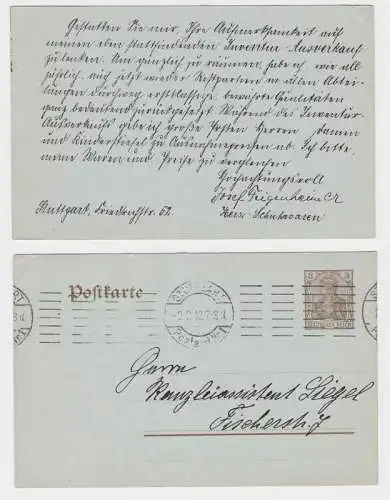 Gestatten Sie mir, Ihre Aufmerksamkeit auf
meinen stattfindenden Inventur-Ausverkauf
zu lenken. Um gänzlich zu räumen, habe ich wie all
jährlich, auch jetzt wieder Restpartien in allen Abtei-
lungen durchweg erstklassige, bewährte Qualitäten
ganz bedeutend zurückgesetzt. Während des Inventur-
Ausverkaufs gebe ich große Posten Herren, Damen
und Kinderstiefel zu Ausnahmepreisen ab. Ich bitte,
meine Waren und Preise zu vergleichen
Hochachtungsvoll
Josef Feigenheimer
Stuttgart, Friedrichstr. 52. Herz-Schuhwaren
Postkarte
STUTTGART
3 3
DEUTSCHES REICH
Herrn
Kanzleiassistent Siegel
Fischerstr.